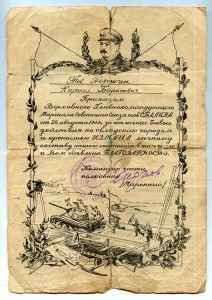 Тов.
Кирилл Борисович
Приказом
Верховного Главнокомандующего
Маршала Советского Союза тов. СТАЛИНА
от 26 августа 1944 за отличные боевые
действия по овладению городом
и крепостью ИЗМАИЛ личному
составу нашего соединения в том числе
и Вам объявлена БЛАГОДАРНОСТЬ.
Командир части
полковник